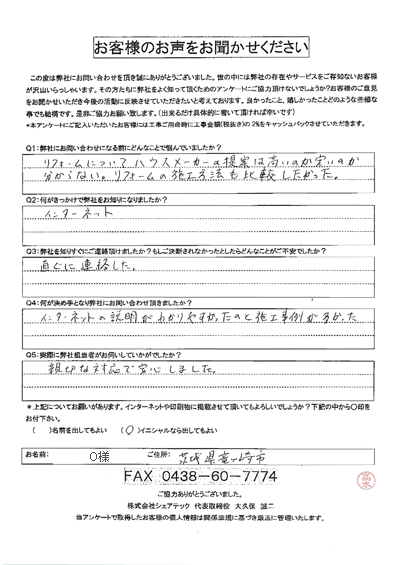 お客様のお声をお聞かせください
この度は弊社にお問い合わせを頂き誠にありがとうございました。世の中には弊社の存在やサービスをご存知ないお客様
が沢山いらっしゃいます。その方たちに弊社をよく知って頂くためのアンケートにご協力頂けないでしょうか?お客様のご意見
をお聞かせいただき今後の活動に反映させていきたいと考えております。良かったこと、嬉しかったことどのような些細な
事でも結構です。是非ご協力お願い致します。(出来るだけ具体的に書いて頂ければ幸いです)
*本アンケートにご記入いただいたお客様には工事ご用命時に工事金額(税抜き)の2%をキャッシュバックさせていただきます。
Q1:弊社にお問い合わせになる前にどんなことで悩んでいましたか?
リフォームについてハウスメーカーの提案は高いのか安いのか
分からない。リフォームの施工方法も比較したかった。
Q2:何がきっかけで弊社をお知りになりましたか?
インターネット
Q3:弊社を知りすぐにご連絡頂けましたか?もしご決断されなかったとしたらどんなことがご不安でしたか?
直ぐに連絡した。
Q4:何が決め手となり弊社にお問い合わせ頂きましたか?
インターネットの説明がわかりやすかったのと施工事例が多かった
Q5:実際に弊社担当者がお伺いしていかがでしたか?
親切な対応で安心しました。
*上記についてお願いがあります。インターネットや印刷物に掲載させて頂いてもよろしいでしょうか?下記の中から〇印を
お付け下さい。
( )名前を出してもよい (〇)イニシャルなら出してもよい
お名前: O様 ご住所: 茨城県竜ヶ崎市
FAX 0438-60-7774
ご協力ありがとうございました。
株式会社シェアテック 代表取締役 大久保 誠二
当アンケートで取得したお客様の個人情報は関係法規に基づき厳正に管理いたします。